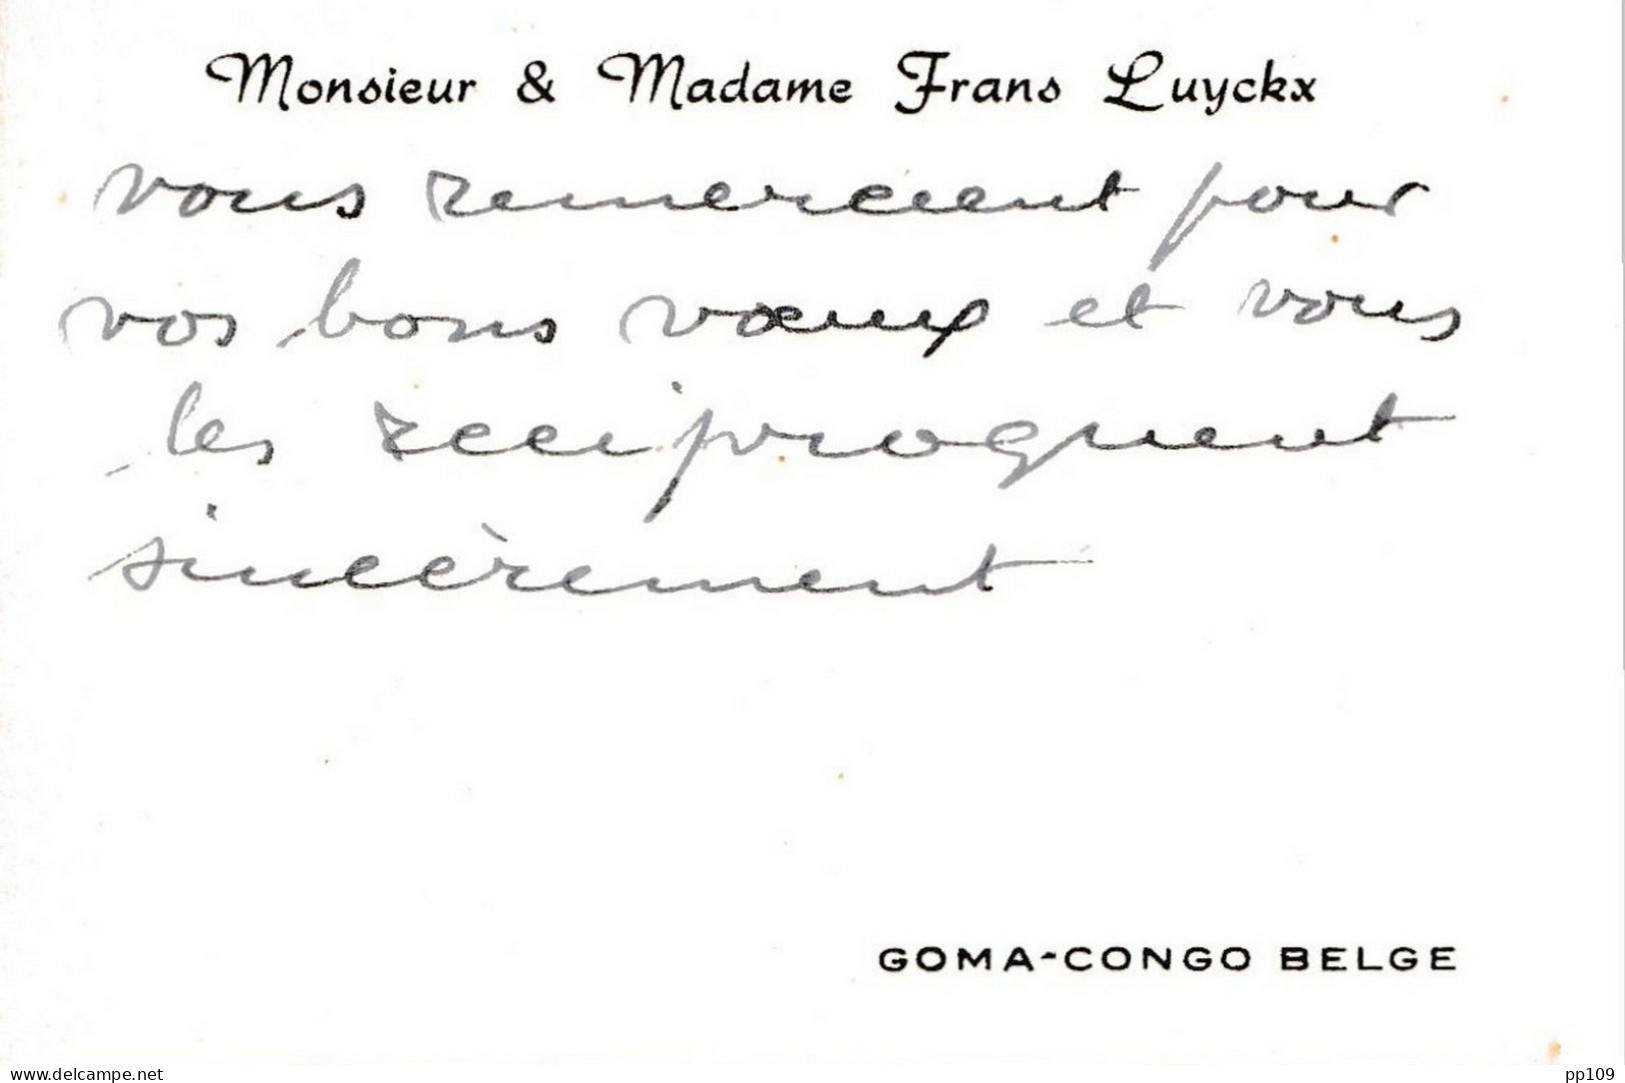 Monsieur & Madame Frans Luyckx
vous remercient pour
vos bons vœux et vous
les reciproquent
sincèrement
GOMA-CONGO BELGE
www.delcampe.net
pp109